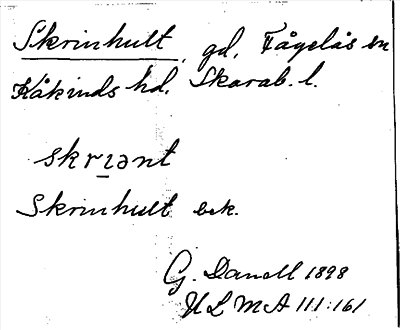 Skrinhult, gd, Fågelås sn
Kåkinds hd. Skarab. l.
skrɪənt
Skrinhult bek.
G. Danell 1898
ULMA 111:161